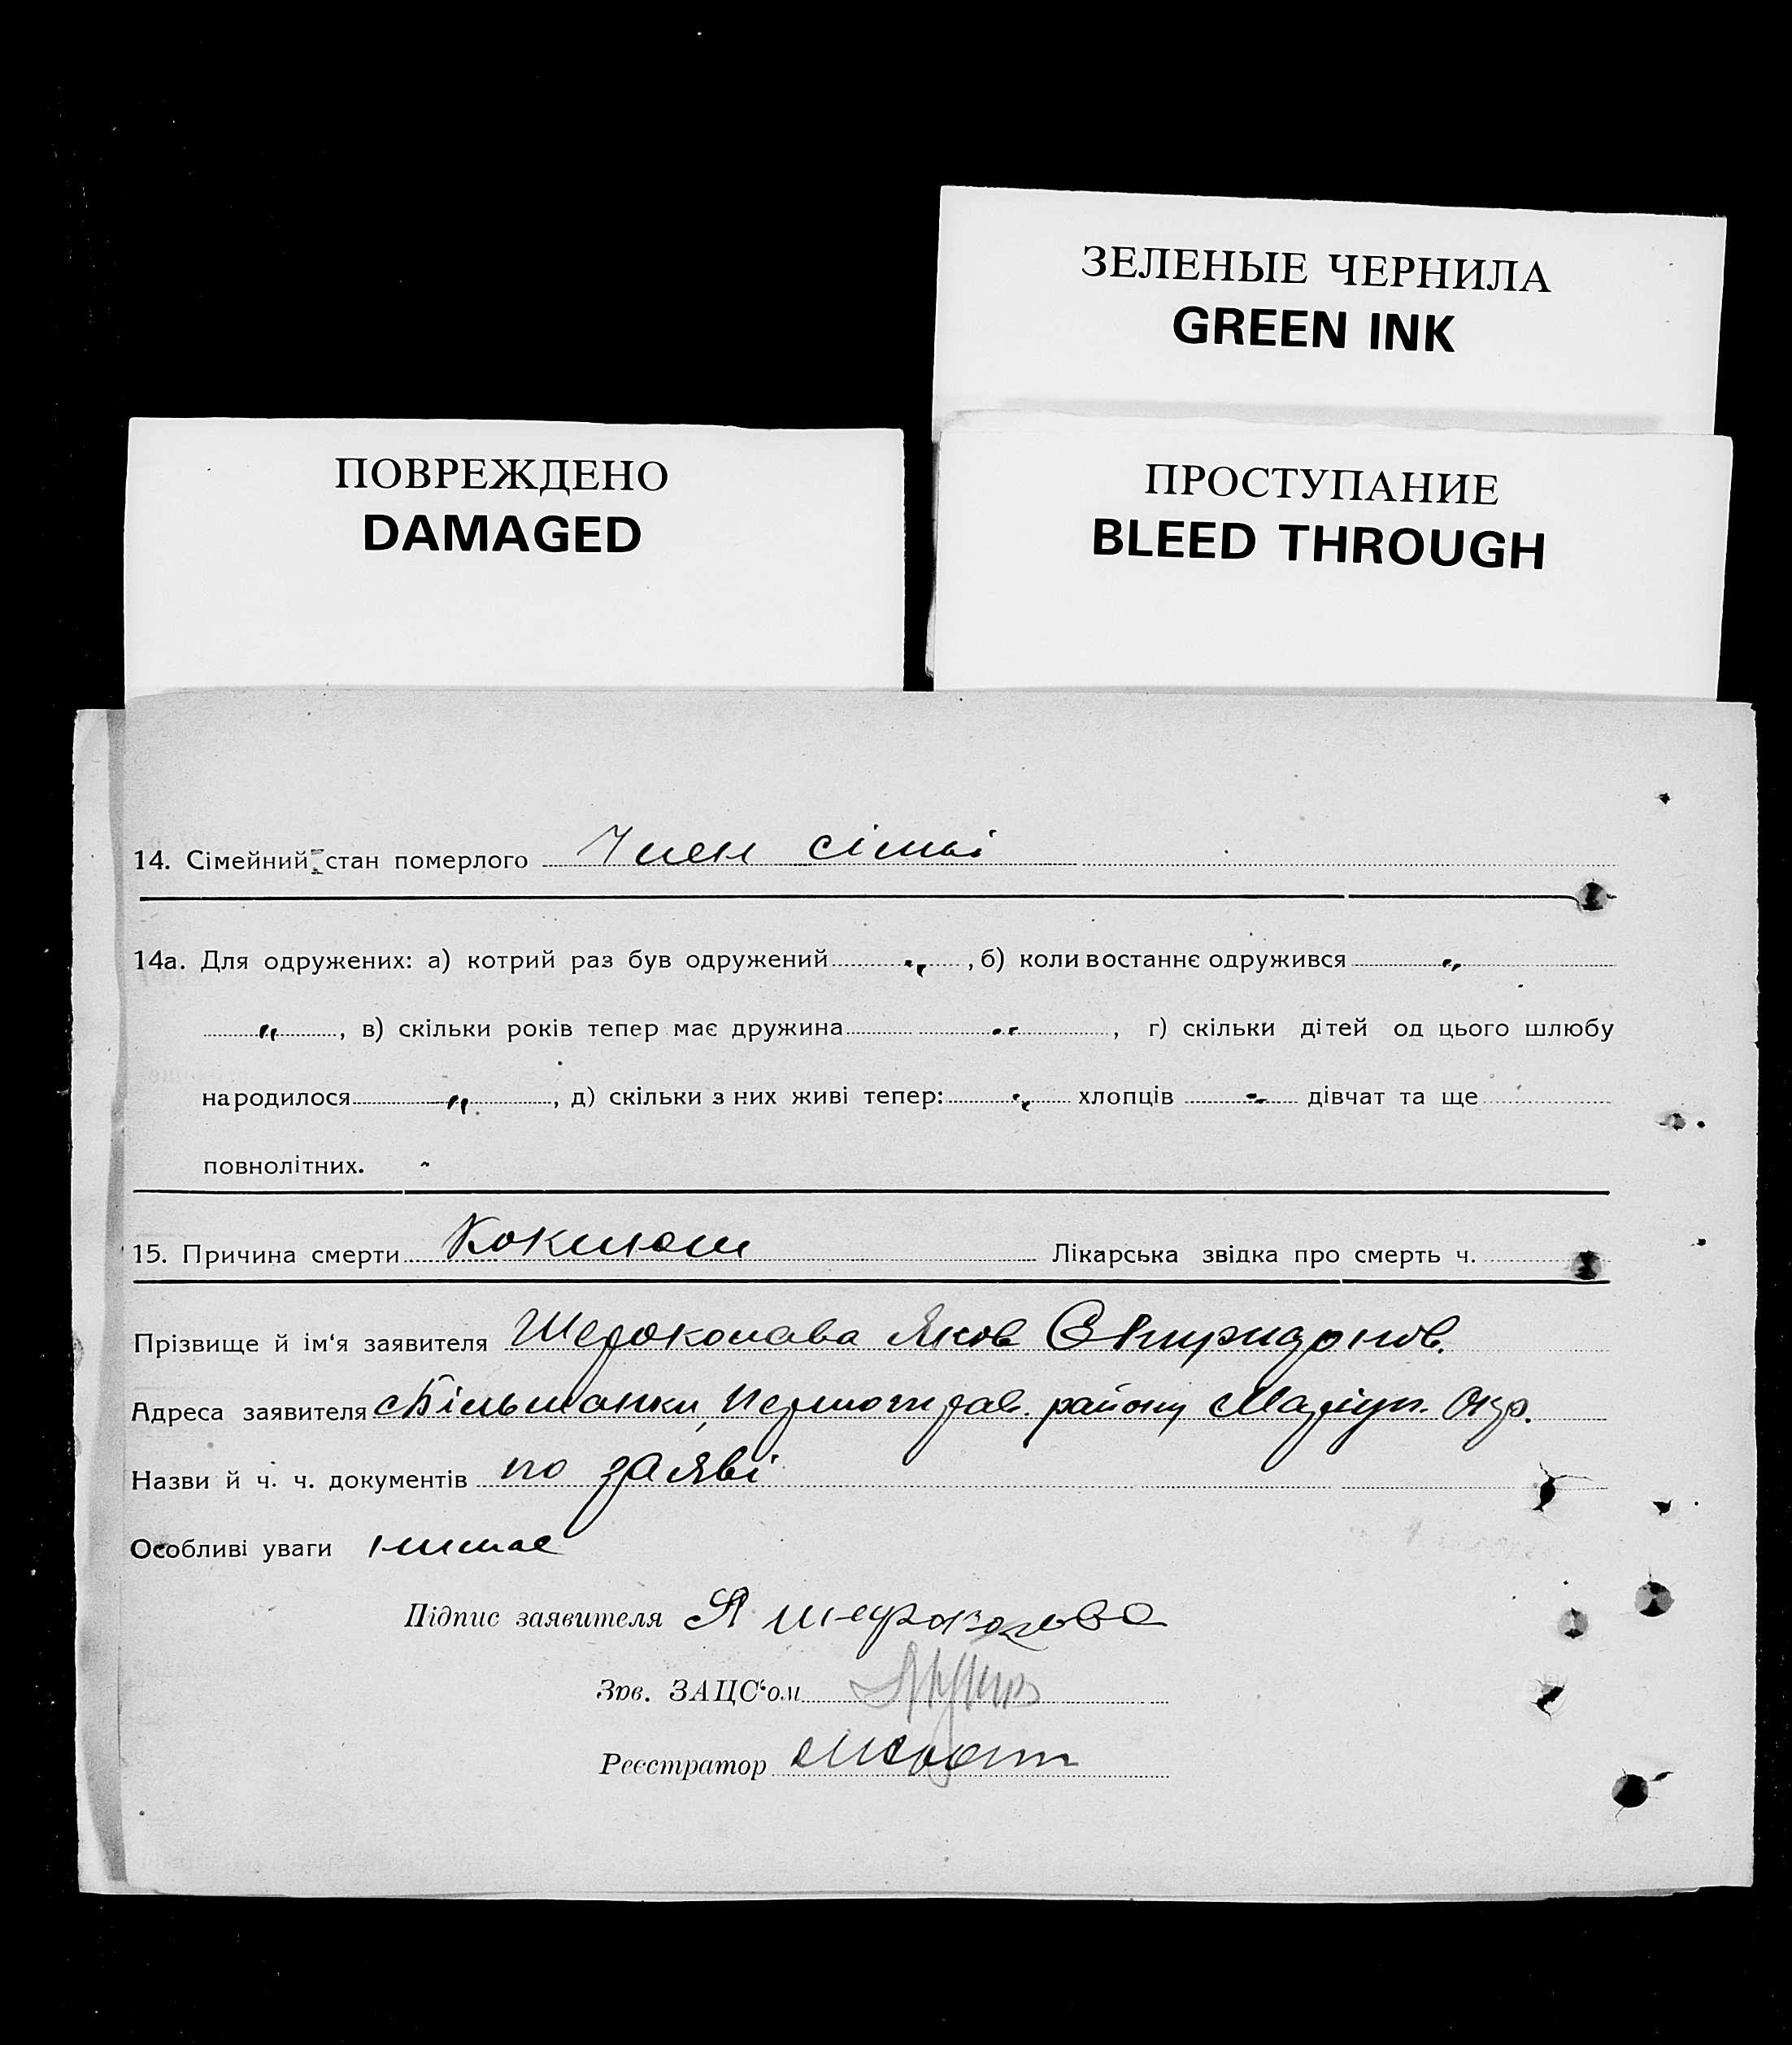 ЗЕЛЕНЫЕ ЧЕРНИЛА
GREEN INK
ПОВРЕЖДЕНО
DAMAGED
ПРОСТУПАНИЕ
BLEED THROUGH
14. Сімейний стан померлого Член сімьі
14а. Для одружених: а) котрий раз був одружений „ , б) коли востаннє одружився „
„ , в) скільки років тепер має дружина „ , г) скільки дітей од цього шлюбу
народилося „ , д) скільки з них живі тепер: „ хлопців „ дівчат та ще
повнолітних. -
15. Причина смерти Коклюш Лікарська звідка про смерть ч.
Прізвище й ім‘я заявителя Яков Спиридонов.
Адреса заявителя с Більманки, району Маріуп. Окр.
Назви й ч. ч. документів по заяві
Особливі уваги нимае
Підпис заявителя Я
Зав. ЗАЦС‘ом
Реєстратор